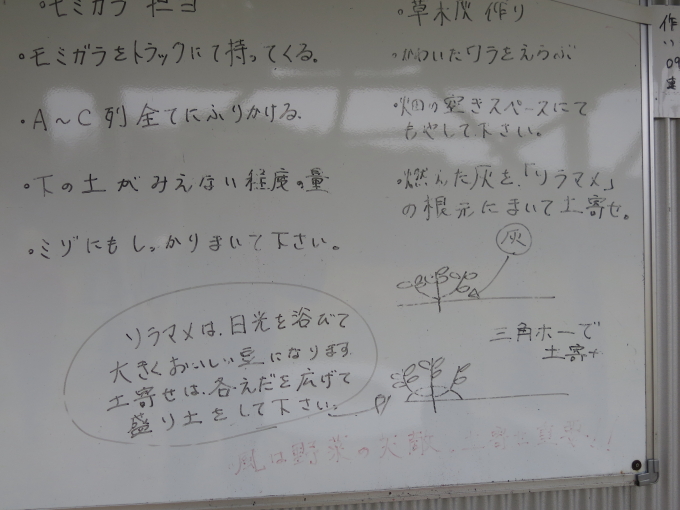 ・モミガラ担当
・モミガラをトラックにて持ってくる。
・A～C列全てにふりかける。
・下の土がみえない程度の量
・ミゾにもしっかりまいて下さい。
ソラマメは、日光を浴びて
大きくおいしい豆になります
土寄せは、各えだを広げて
盛り土をして下さい。
・草木灰作り
・かわいたワラをえらぶ
・畑の空きスペースにて
もやして下さい。
・燃えた灰を、「ソラマメ」
の根元にまいて土寄せ。
灰
三角ホーで
土寄せ
風は野菜の天敵、土寄せ重要!!
作
い
09